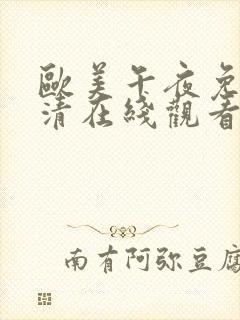 歐美午夜免
清在綫觀看
南有阿弥豆腐